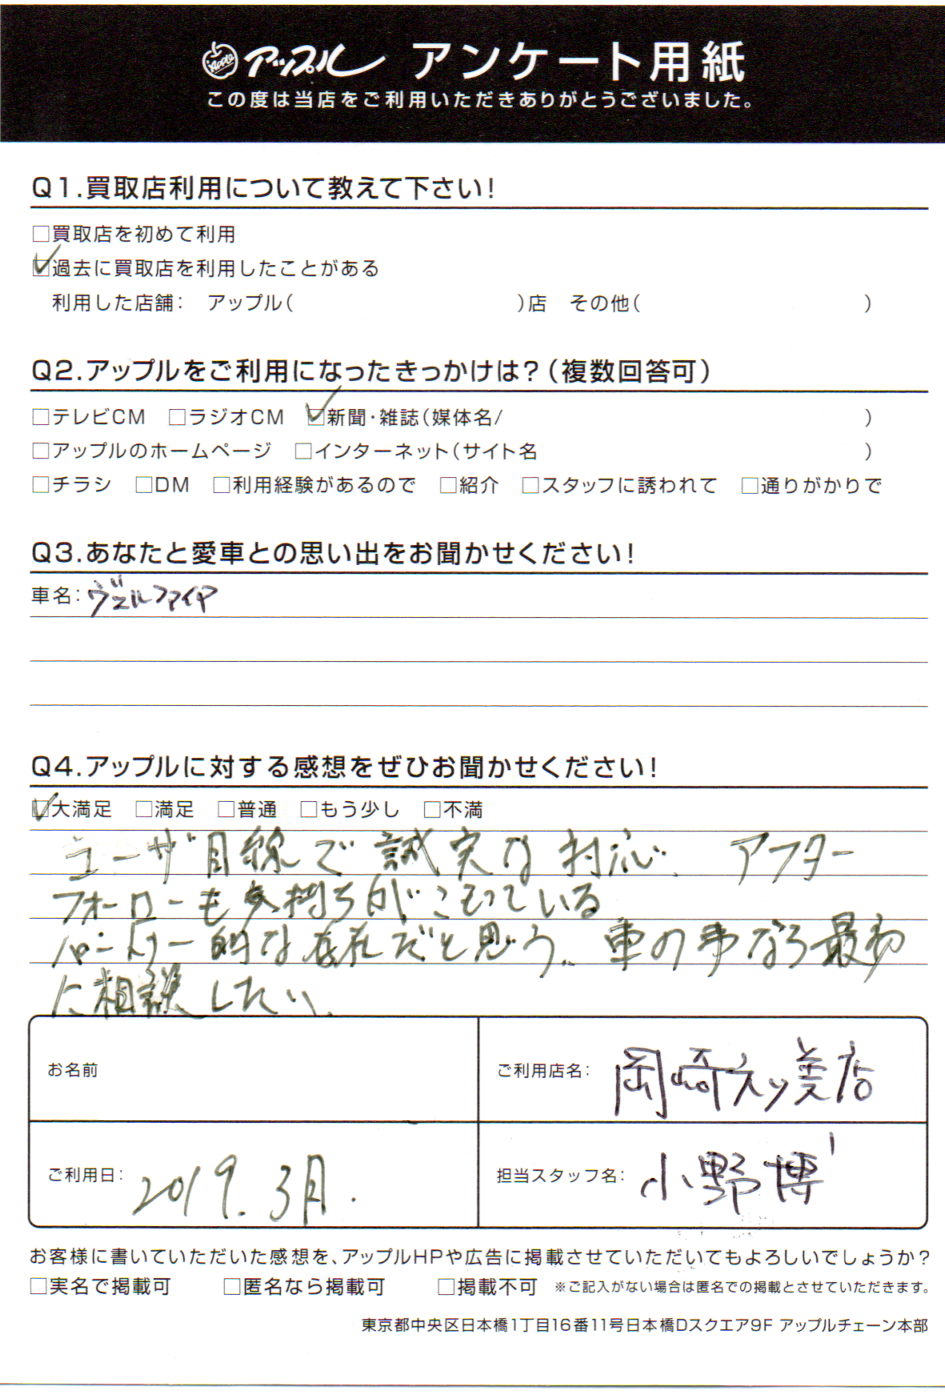 Apple アップル アンケート用紙
この度は当店をご利用いただきありがとうございました。
Q1.買取店利用について教えて下さい!
□買取店を初めて利用
☑過去に買取店を利用したことがある
利用した店舗: アップル( )店 その他( )
Q2.アップルをご利用になったきっかけは?(複数回答可)
□テレビCM □ラジオCM ☑新聞・雑誌(媒体名/ )
□アップルのホームページ □インターネット(サイト名 )
□チラシ □DM □利用経験があるので □紹介 □スタッフに誘われて □通りがかりで
Q3.あなたと愛車との思い出をお聞かせください!
車名:ヴェルファイヤ
Q4.アップルに対する感想をぜひお聞かせください!
☑大満足 □満足 □普通 □もう少し □不満
ユーザ目線で誠実な対応、アフター
フォーローも気持ちがこもっている
パートナー的な存在だと思う。車の事なら最初
に相談したい、
お名前
ご利用店名: 岡崎 美店
ご利用日: 2019.3月.
担当スタッフ名: 小野 博
お客様に書いていただいた感想を、アップルHPや広告に掲載させていただいてもよろしいでしょうか?
□実名で掲載可 □匿名なら掲載可 □掲載不可 ※ご記入がない場合は匿名での掲載とさせていただきます。
東京都中央区日本橋1丁目16番11号日本橋Dスクエア9F アップルチェーン本部